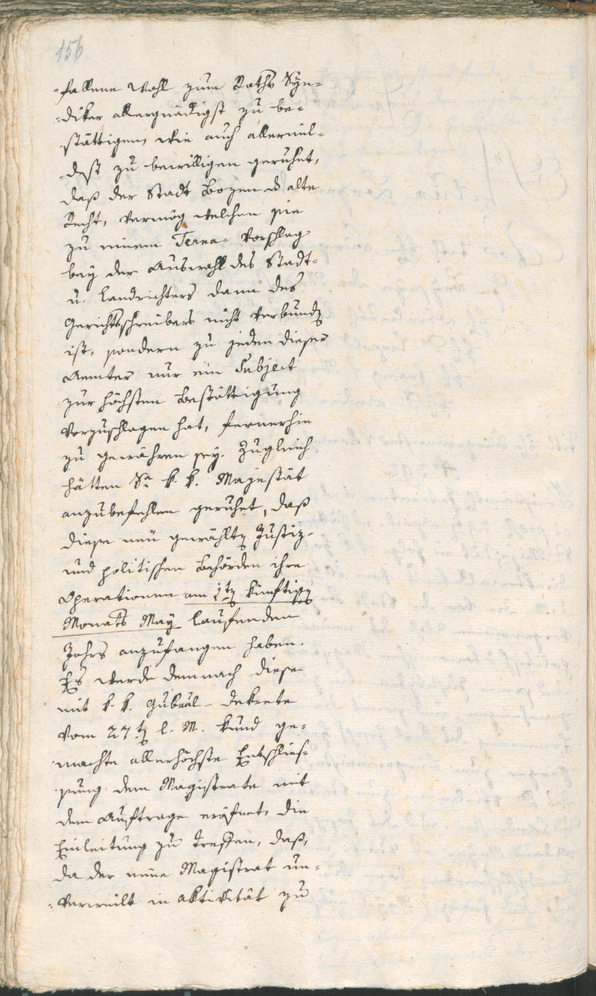 156
fallene Wahl zum Raths Syn-
diker allergnädigst zu be-
stättigen, wie auch allermil-
dest zu bewilligen geruhet,
daß der Stadt Bozen alte
Recht, vermög welchen sie
zu einem Terna-Vorschlag
bey der Auswahl des Stadt-
u. Landrichters dann des
Gerichtsschreibers nicht verbunden
ist, sondern zu jeden dieser
Aemter nur ein Subject
zur höchsten Bestättigung
vorzuschlagen hat, fernerhin
zu gewähren sey. Zugleich
hätten Se k. k. Majestät
anzubefehlen geruhet, daß
diese neü gewählte Justiz-
und politischen Behörden ihre
Operationen am 1ten künftigen
Monats May laufenden
Jahrs anzufangen haben.
Es werde demnach diese
mit k. k. Gubernial-Dekrete
vom 27ten l. M. kund ge-
machte allerhöchste Entschlies-
sung dem Magistrate mit
dem Auftrage eröfnet, die
Einleitung zu treffen, daß,
da der neüe Magistrat un-
verweilt in aktivität zu